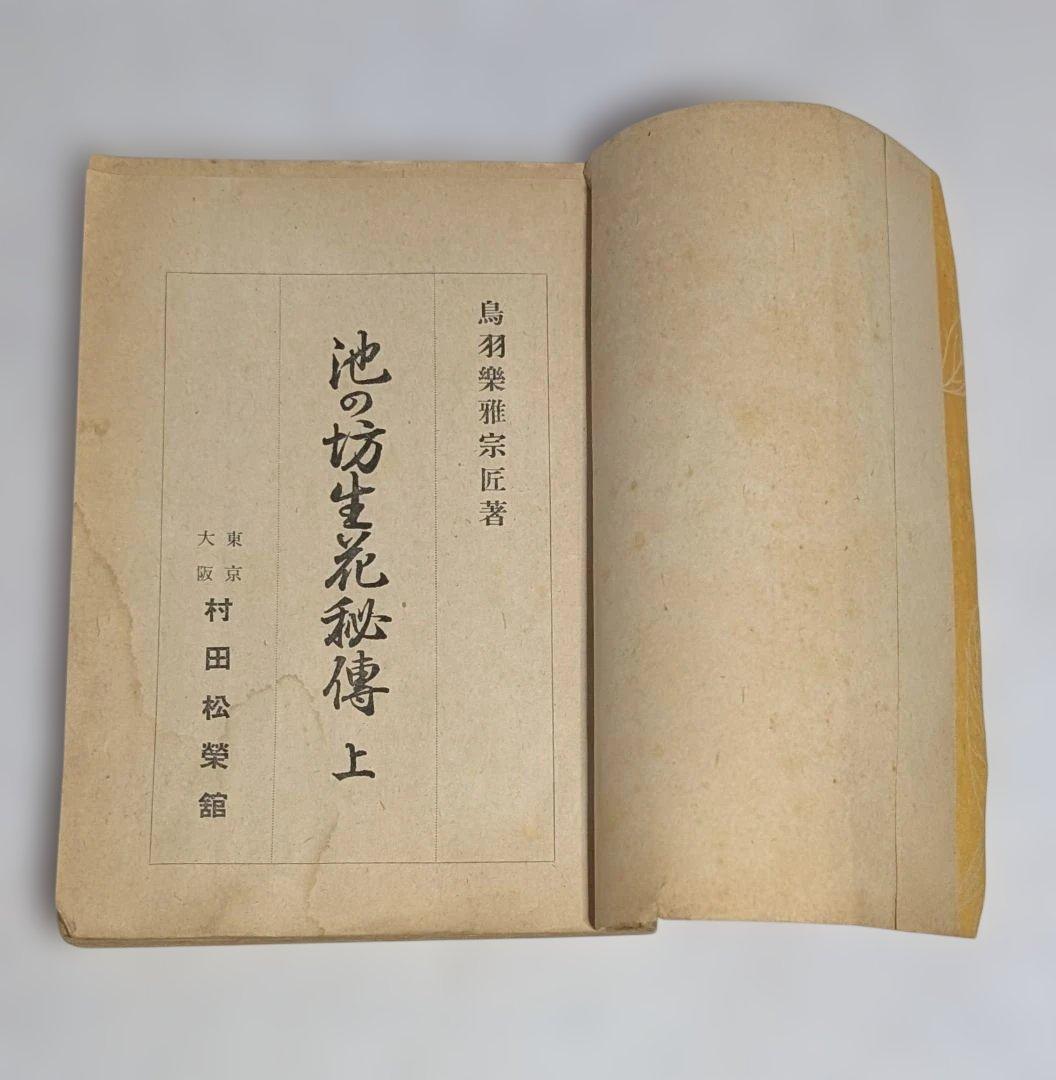 鳥羽樂雅宗匠著
池の坊生花秘傳 上
東京
大阪
村田松榮舘